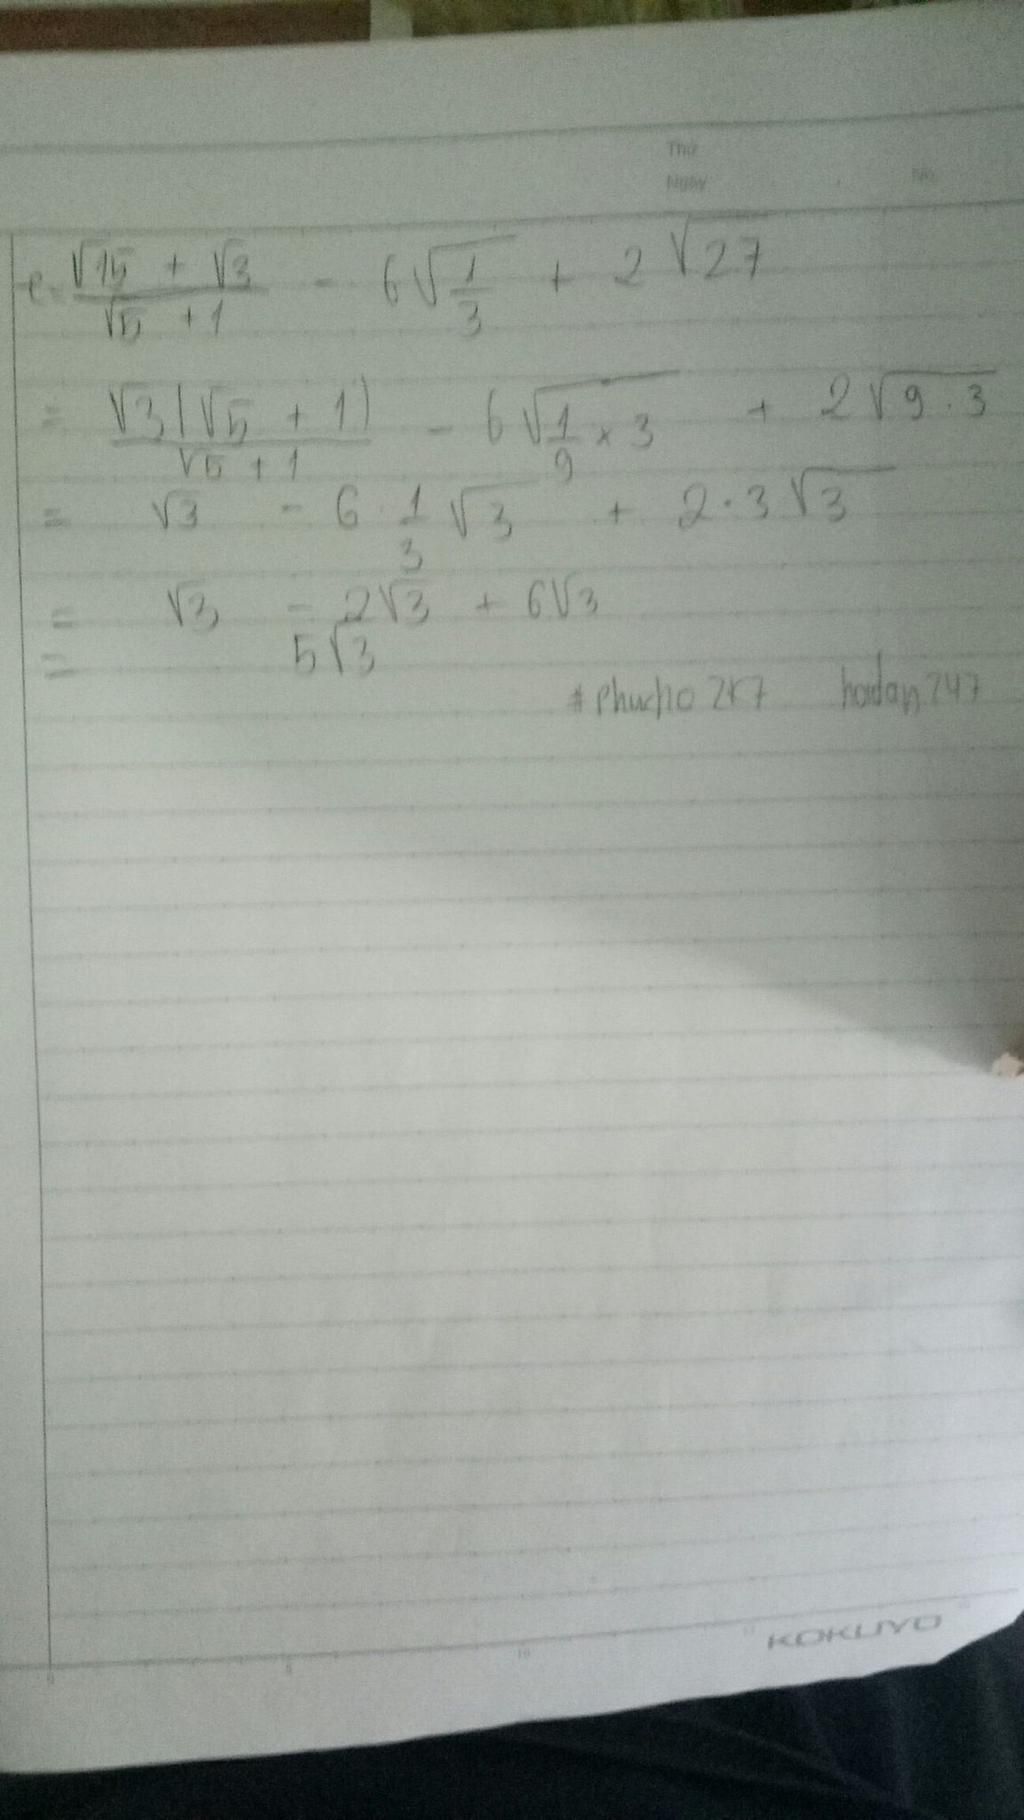 Thứ
Ngày No.
e = \frac{√15 + √3}{√5 + 1} - 6√\frac{1}{3} + 2√27
= \frac{√3(√5 + 1)}{√5 + 1} - 6√\frac{1}{9} × 3 + 2√9 . 3
= √3 - 6 . \frac{1}{3} √3 + 2 . 3√3
= √3 - 2√3 + 6√3
= 5√3
# phucho 2k7 hoidap247
KOKUYO